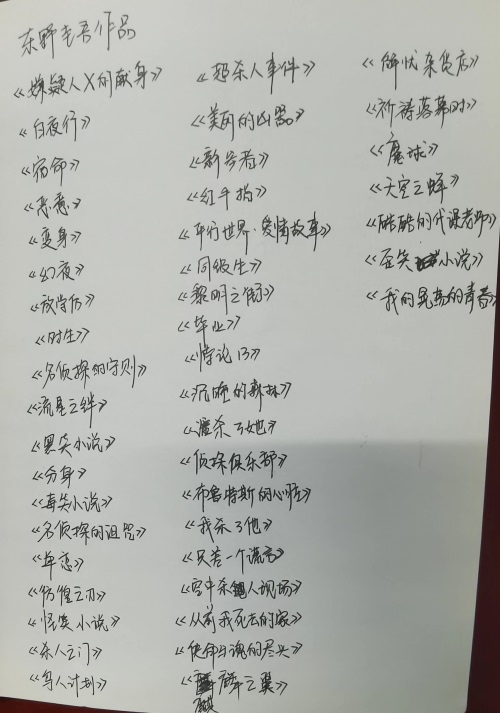 东野圭吾作品
《嫌疑人X的献身》
《白夜行》
《宿命》
《恶意》
《变身》
《幻夜》
《放学后》
《时生》
《名侦探的守则》
《流星之绊》
《黑笑小说》
《分身》
《毒笑小说》
《名侦探的诅咒》
《单恋》
《彷徨之刃》
《怪笑小说》
《杀人之门》
《鸟人计划》
《超杀人事件》
《美丽的凶器》
《新参者》
《红手指》
《平行世界·爱情故事》
《同级生》
《黎明之街》
《毕业》
《悖论13》
《沉睡的森林》
《谁杀了她》
《侦探俱乐部》
《布鲁特斯的心脏》
《我杀了他》
《只差一个谎言》
《空中杀人现场》
《从前我死去的家》
《使命与魂的尽头》
《麒麟之翼》
《解忧杂货店》
《祈祷落幕时》
《魔球》
《天空之蜂》
《酷酷的代课老师》
《歪笑小说》
《我的晃荡的青春》